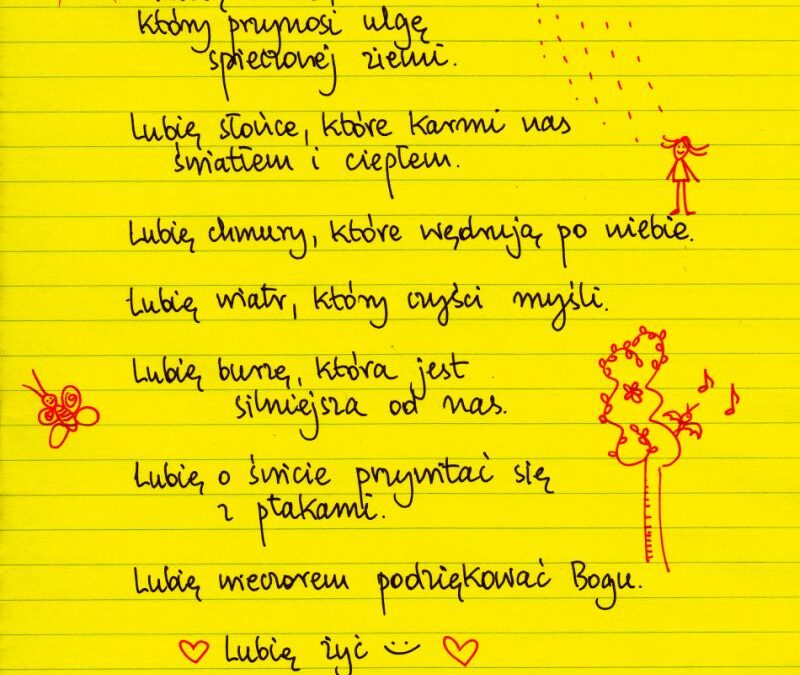 który przynosi ulgę
spieczonej ziemi.
Lubię słońce, które karmi nas
światłem i ciepłem.
Lubię chmury, które wędrują po niebie.
Lubię wiatr, który czyści myśli.
Lubię burzę, która jest
silniejsza od nas.
Lubię o świcie przywitać się
z ptakami.
Lubię wieczorem podziękować Bogu.
Lubię żyć